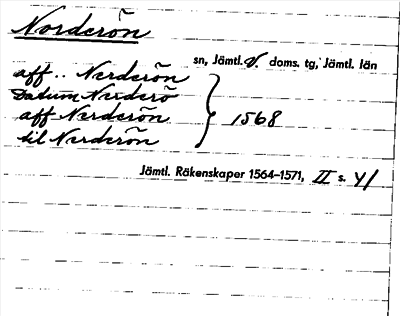 Norderön
sn, Jämtl. V. doms. tg, Jämtl. län
aff .. Nerderön
Datum Nerderö
aff Nerderön } 1568
til Nerderön
Jämtl. Räkenskaper 1564-1571, II s. 41